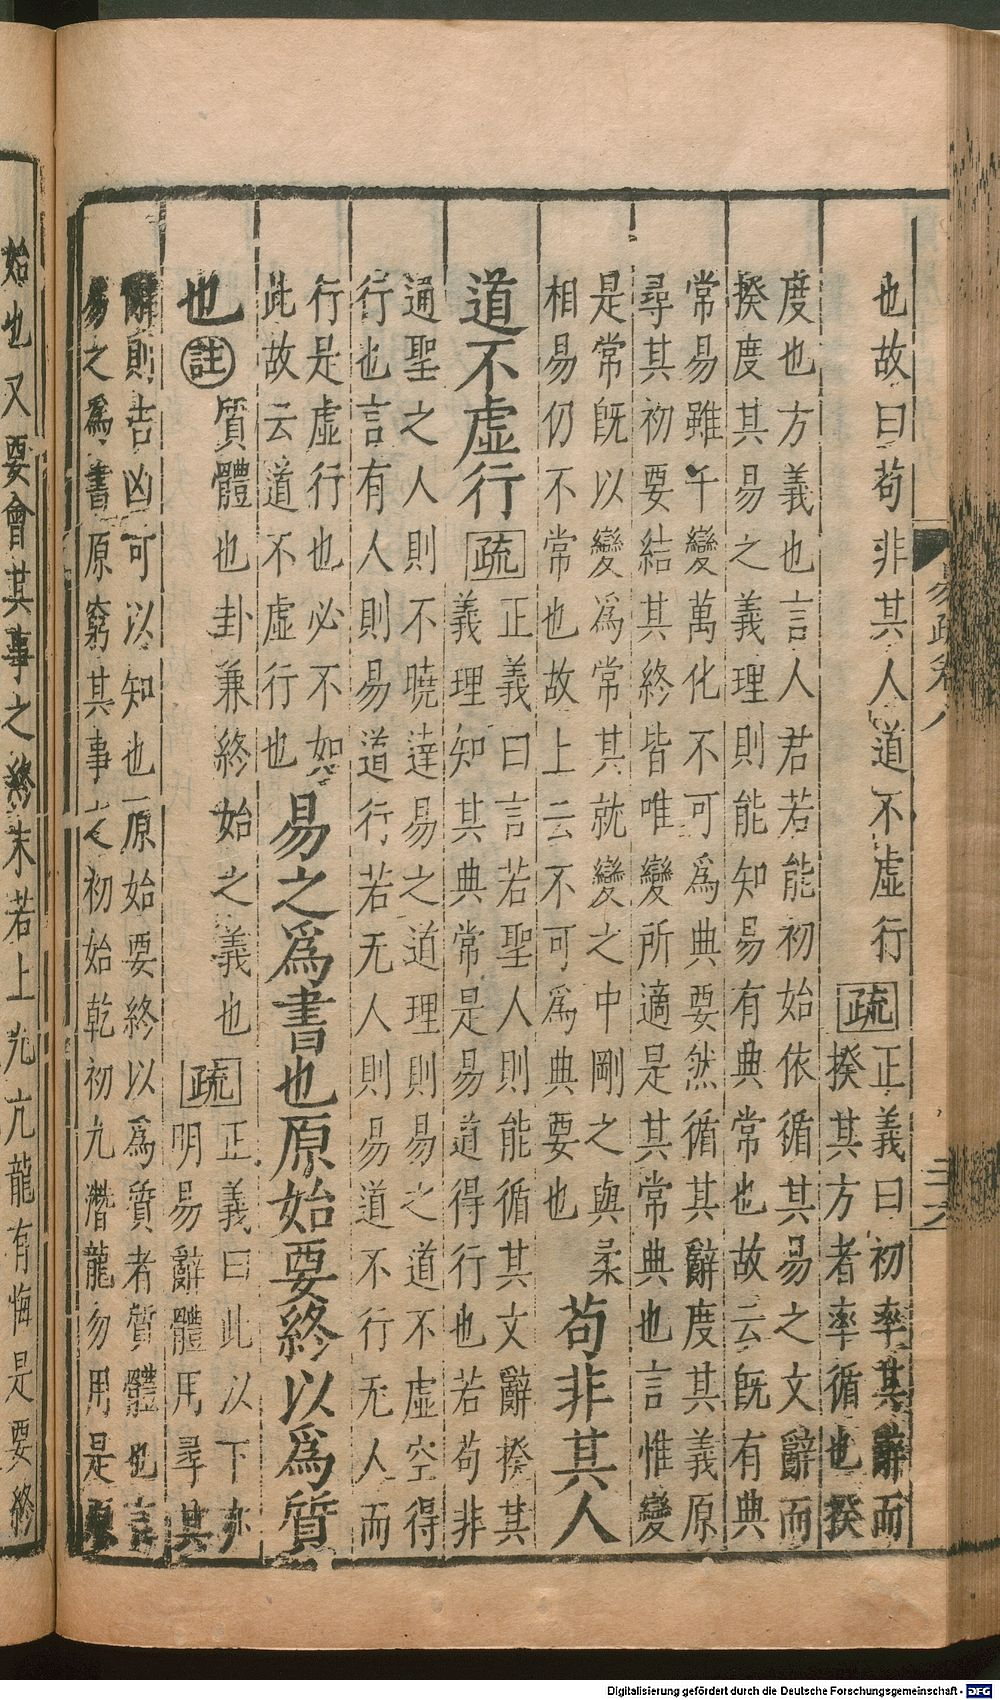 易疏卷八
也故曰苟非其人道不虛行疏正義曰初率其辭而
揆其方者率循也揆
度也方義也言人君若能初始依循其易之文辭而
揆度其易之義理則能知易有典常也故云既有典
常易雖千變萬化不可爲典要然循其辭度其義原
尋其初要結其終皆唯變所適是其常典也言惟變
是常既以變爲常其就變之中剛之與柔
相易仍不常也故上云不可爲典要也
苟非其人
道不虛行疏正義曰言若聖人則能循其文辭揆其
義理知其典常是易道得行也若苟非
通聖之人則不曉達易之道理則易之道不虛空得
行也言有人則易道行若无人則易道不行无人而
行是虛行也必不如
此故云道不虛行也
易之爲書也原始要終以爲質
也註質體也卦兼終始之義也疏正義曰此以下亦
明易辭體用尋其
辭則吉凶可以知也原始要終以爲質者質體也言
易之爲書原窮其事之初始乾初九潛龍勿用是原
始也又要會其事之終末若上九亢龍有悔是要終
Digitalisierung gefördert durch die Deutsche Forschungsgemeinschaft - DFG